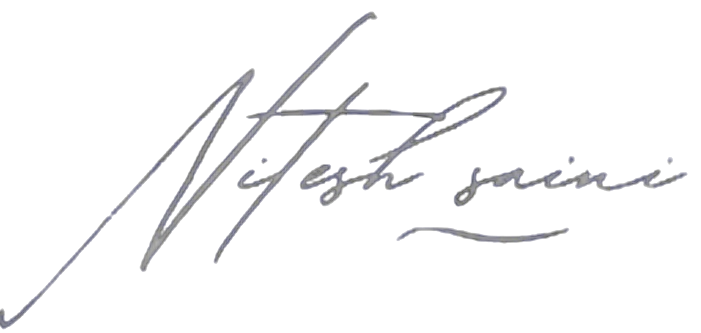 Nitesh saini